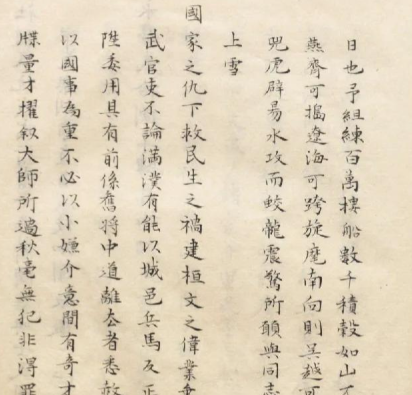 日也予組練百萬樓船數千積穀如山不
燕齊可搗遼海可跨旋麾南向則吳越可
兕虎辟易水攻而蛟龍震驚所願與同志
上雪
國家之仇下救民生之禍建桓文之偉業垂
武官吏不論滿漢有能以城邑兵馬反正
陞委用具有前係舊將中道離去者悉赦
以國事為重不必以小嫌介意間有奇才
牒量才擢叙大師所過秋毫無犯非得罪